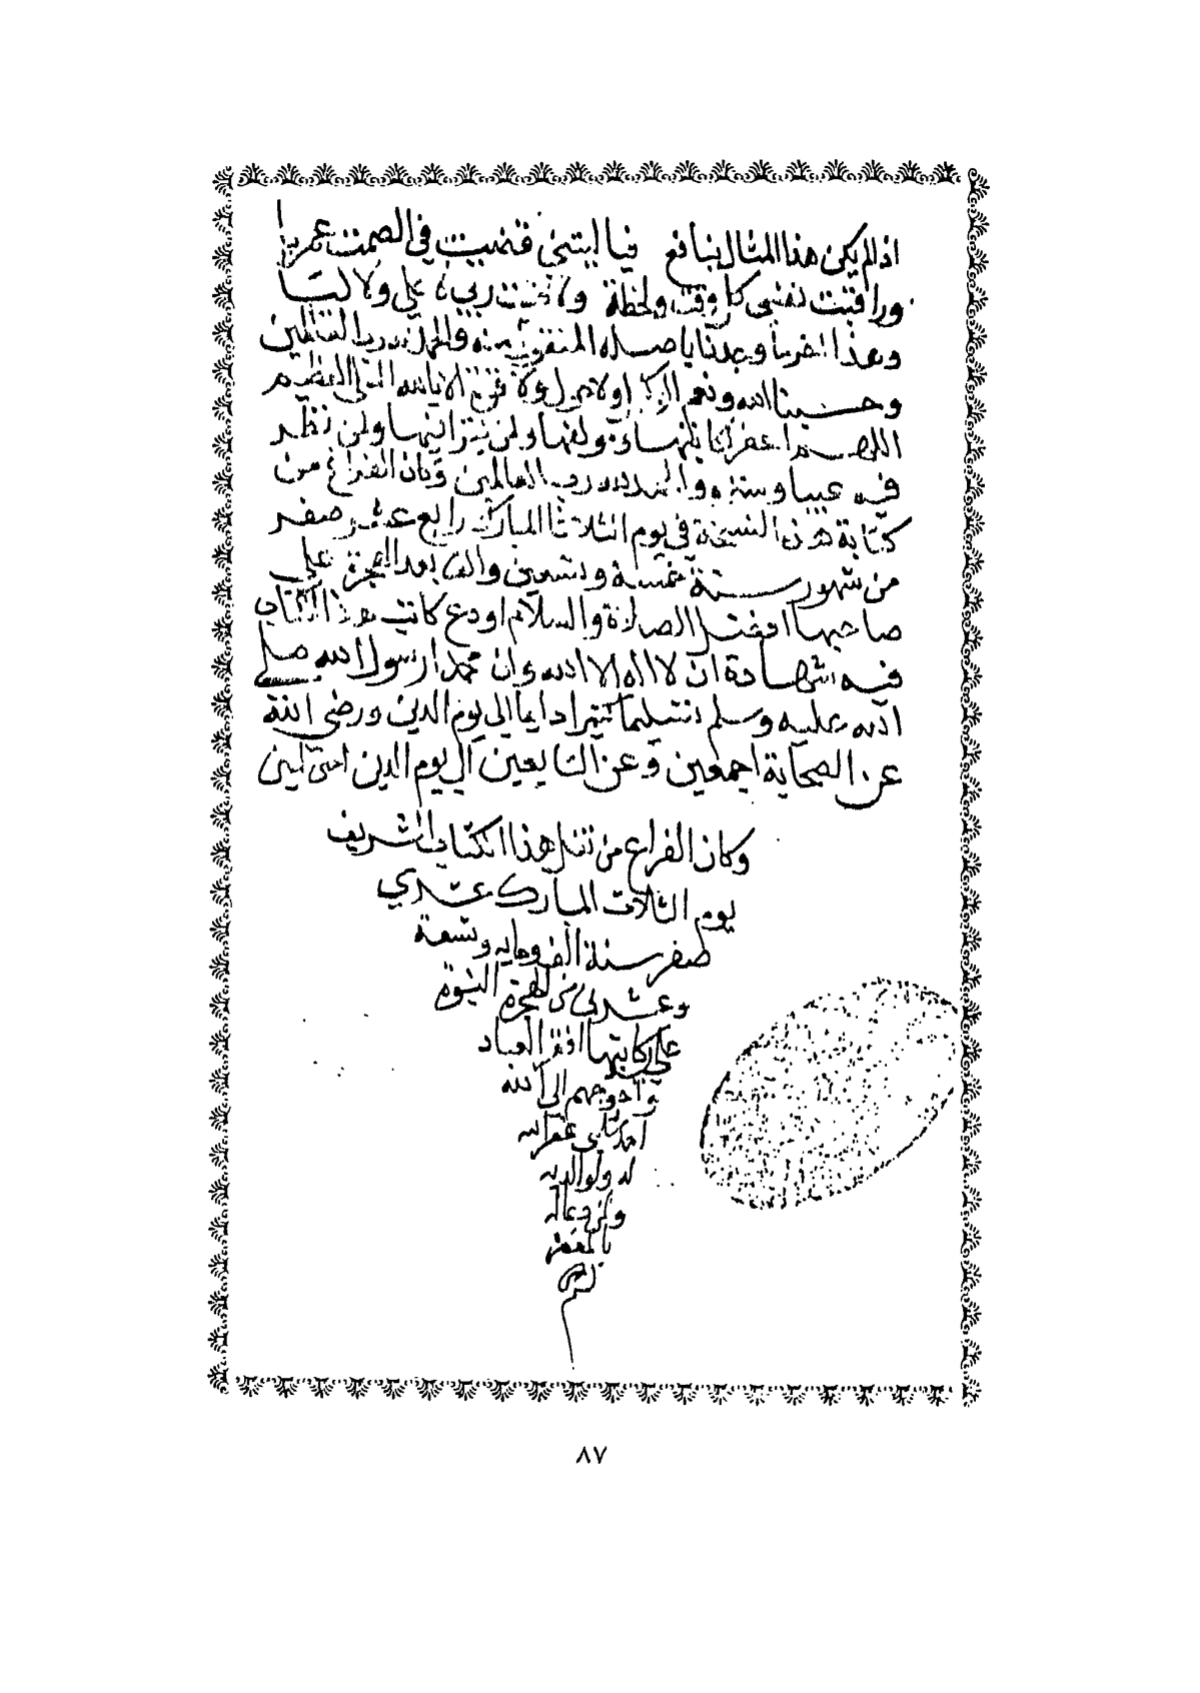 اذا لم يكن هذا المثال بنافع فيا ليتني قضيت في الصمت عمرنا
وراقبت نفسي كل وقت ولحظة ولا غبت ربي علي ولا لنا
وهذا اخر ما وجدنا باصله المنقول منه والحمد لله رب العالمين
وحسبنا الله ونعم الوكيل ولا حول ولا قوة الا بالله العلي العظيم
اللهم اغفر لكاتبها ومولفها ولمن يقرا فيها ولمن نظر
فيه عيبا وستره والحمد لله رب العالمين وكان الفراغ من
كتابة هذه النسخة في يوم الثلاثا المبارك رابع عشر صفر
من شهور سنة خمسة وتسعين والف بعد الهجرة علي
صاحبها افضل الصلاة والسلام اودع كاتب هذا الكتاب
فيه شهادة ان لا اله الا الله وان محمدا رسول الله صلي
الله عليه وسلم تسليما كثيرا دايما الي يوم الدين ورضي الله
عن الصحابة اجمعين وعن التابعين الي يوم الدين امين امين
وكان الفراغ من نقل هذا الكتاب الشريف
يوم الثلاث المبارك عشري
صفر سنة الف ومايه وتسعة
وعشرين من الهجرة النبوة
علي كاتبها افقر العباد
واحوجهم الي الله
احمد غفر الله
له ولوالديه
ولمن دعا له
بالمغفرة
٨٧